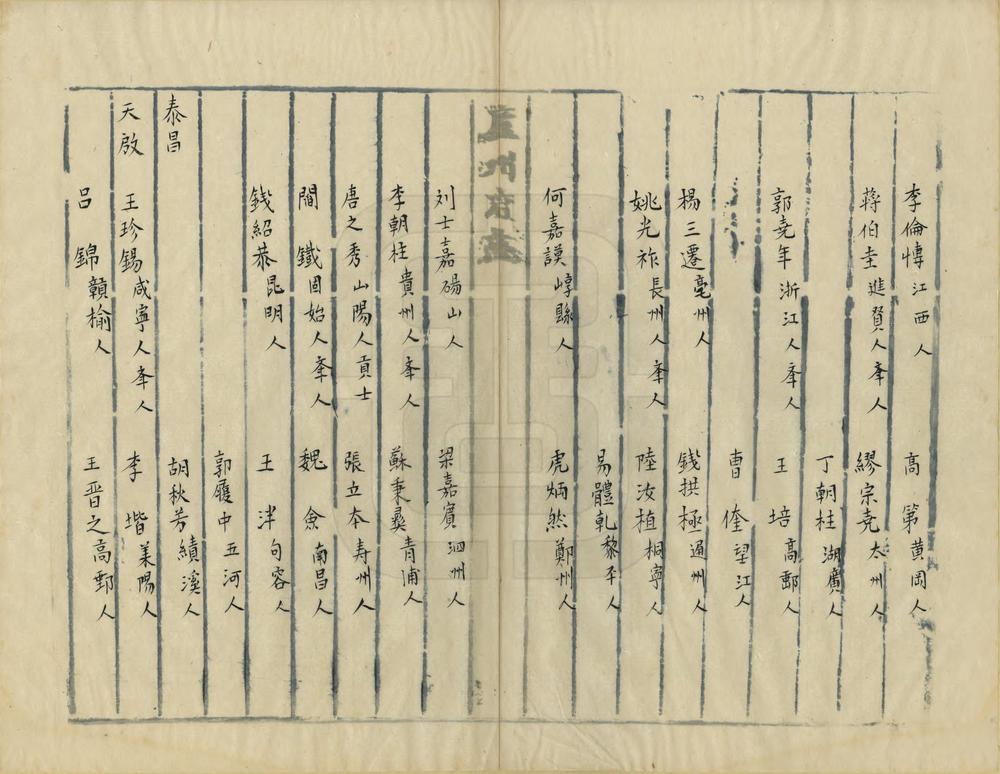 李倫慱江西人　高第黄岡人
蔣伯圭進賢人夆人　繆宗堯太州人
丁朝柱湖廣人
郭堯年浙江人夆人　王培高郵人
曹㑺望江人
楊三遷亳州人　錢拱極通州人
姚光祚長州人夆人　陸汝植桐寧人
易體乹黎平人
何嘉謨崞縣人　虎炳然鄭州人
盧州府志
刘士嘉碭山人　梁嘉賓泗州人
李朝柱貴州人夆人　蘇秉彝青浦人
唐之秀山陽人貢士　張立本寿州人
閻鐵固始人夆人　魏僉南昌人
錢紹恭昆明人　王泮句容人
郭履中五河人
泰昌　胡秋芳績溪人
天啟　王珍錫咸寧人夆人　李堦美陽人
吕錦贑榆人　王晋之高郵人